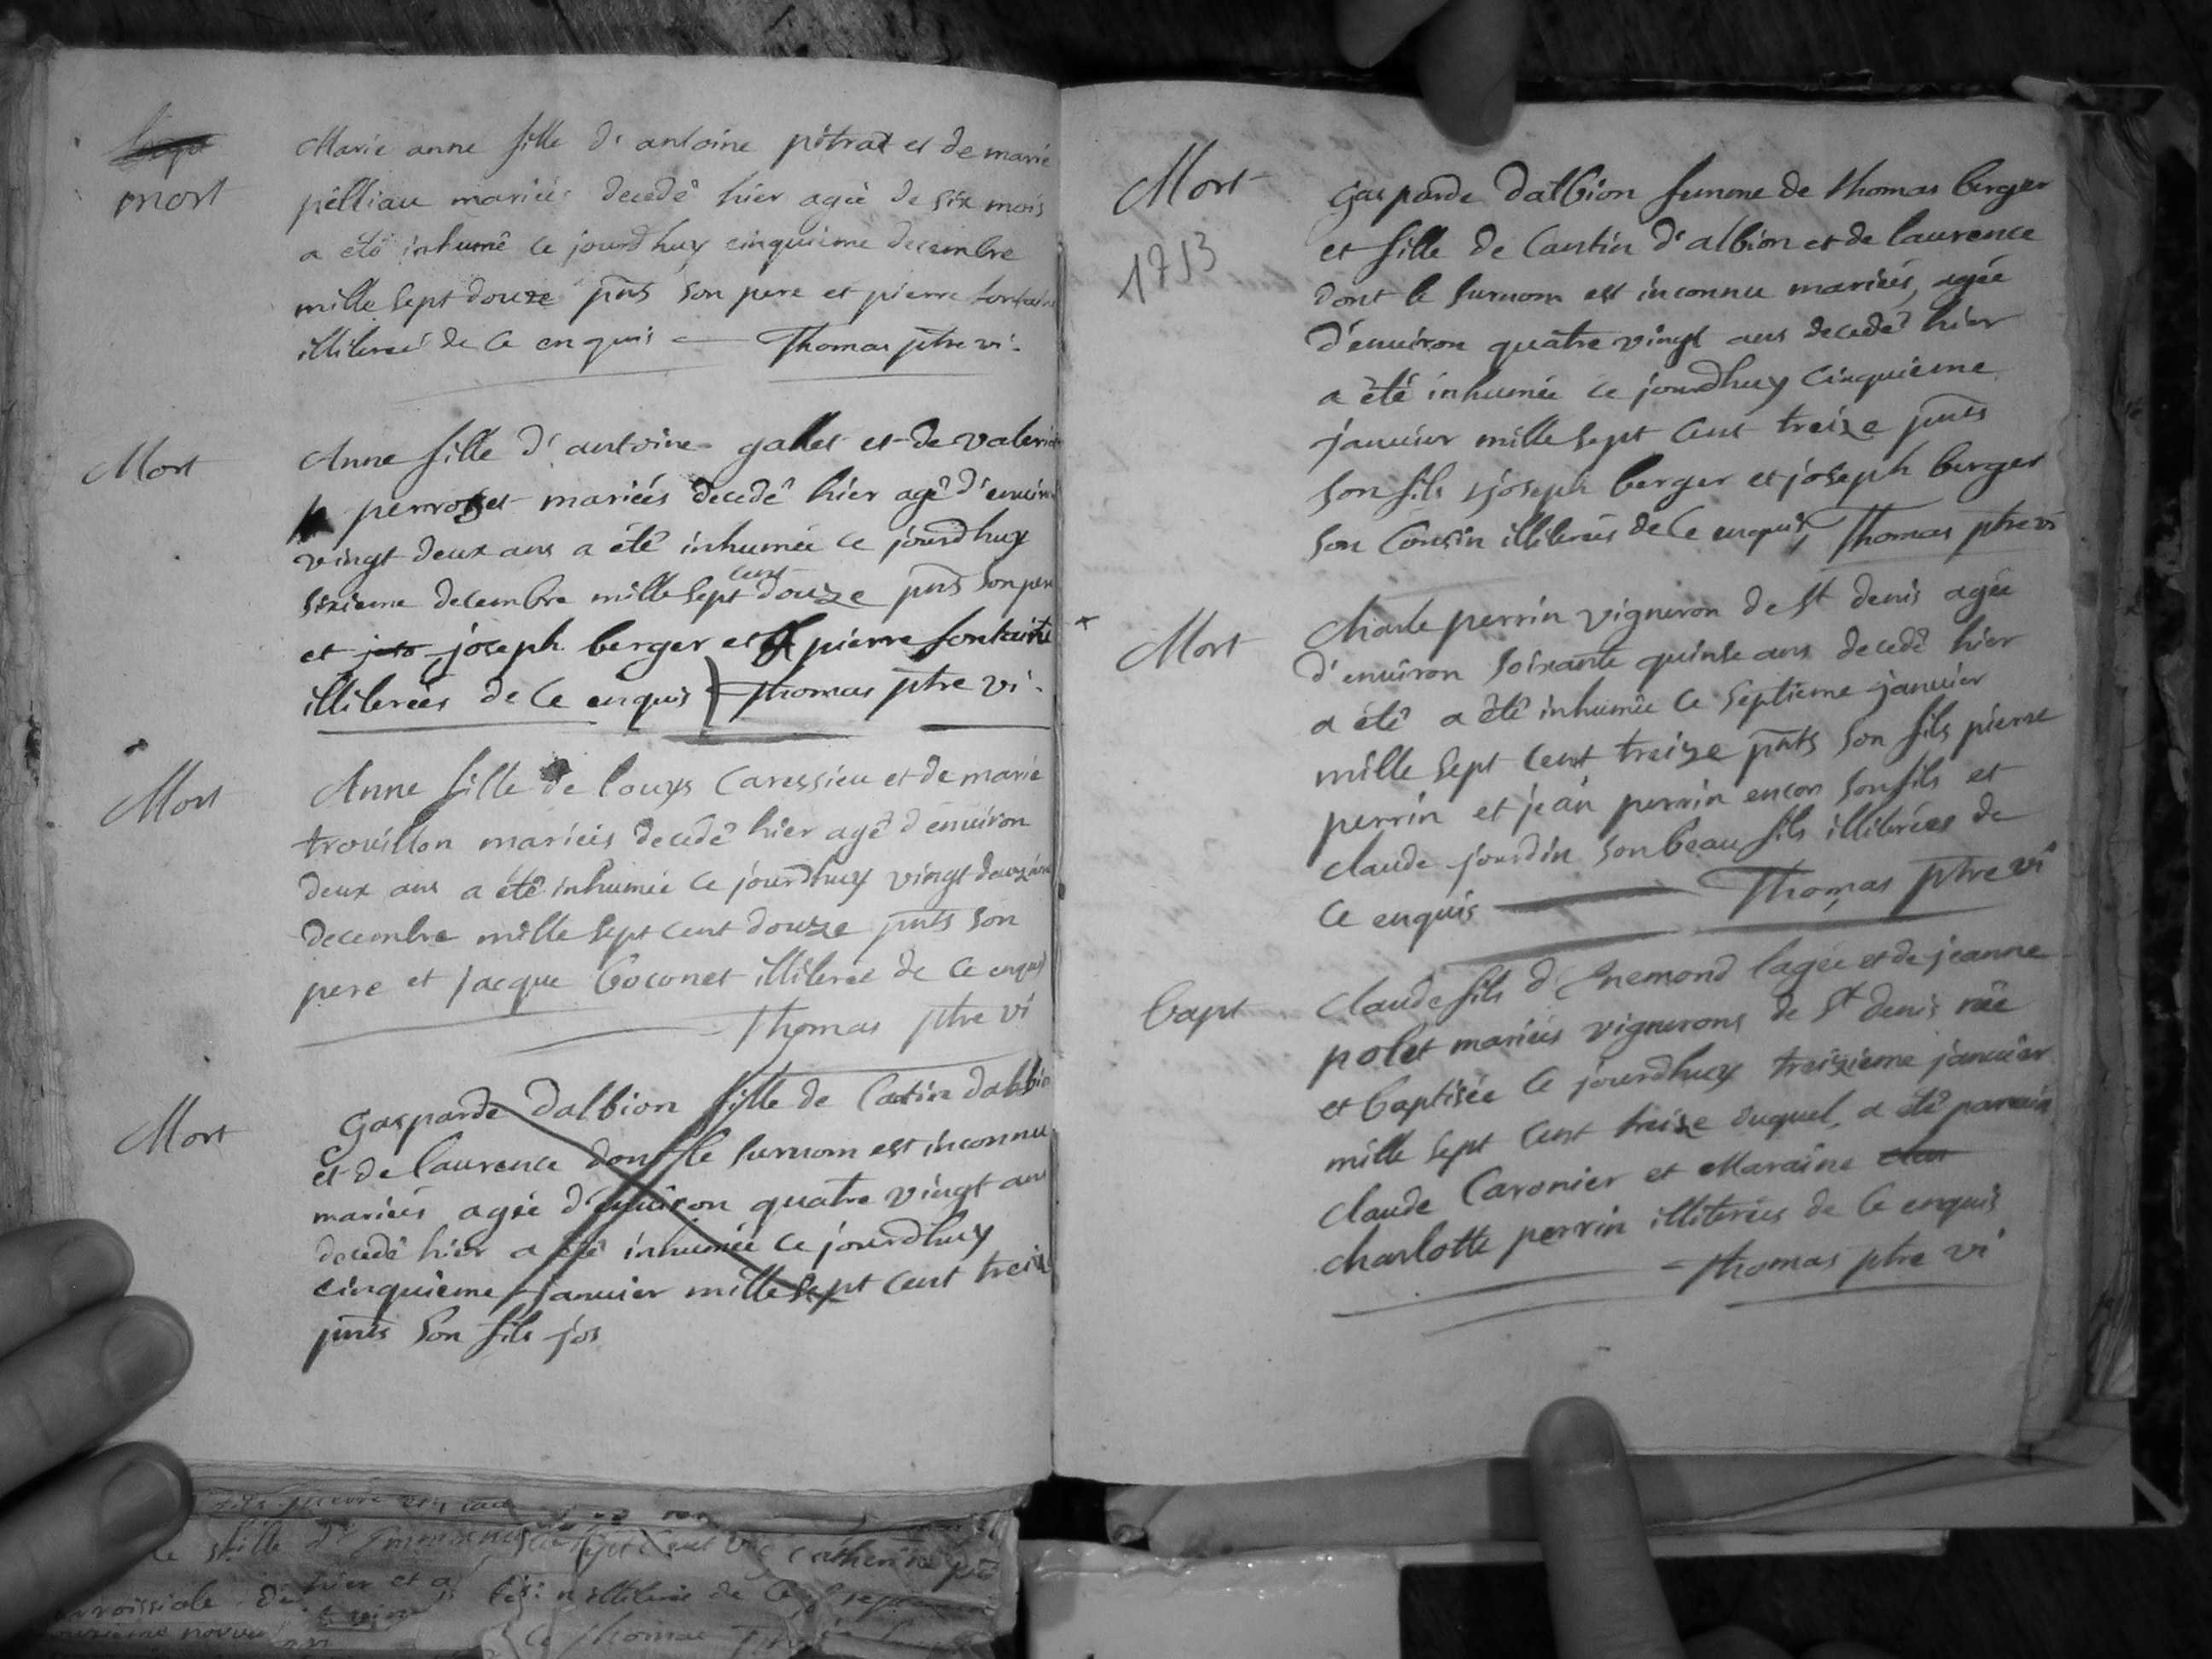 mort
Marie anne fille d'antoine pitrat et de marie
pelliau mariés decedé hier agée de six mois
a eté inhumé ce jourdhuy cinquieme decembre
mille sept douze pnts son pere et pierre
illiterés de ce enquis Thomas ptre vi.
Mort
Anne fille d'antoine gallet et de
perroset mariés decedé hier agé d'environ
vingt deux ans a été inhumée ce jourdhuy
sixieme decembre mille sept cent douze pnts son pere
et joseph berger et pierre fontaine
illiterées de ce enquis Thomas ptre vi.
Mort
Anne fille de louys Caressieu et de marie
trouillon mariés decedé hier agé d'environ
deux ans a été inhumée ce jourdhuy vingt
decembre mille sept cent douze pnts son
pere et Jacque Coconet illiteré de ce enquis
Thomas ptre vi
Mort
Gasparde dalbion fille de Cantin dalbion
et de laurence dont le surnom est inconnu
mariés agée d'environ quatre vingt ans
decedé hier a été inhumée ce jourdhuy
cinquieme janvier mille sept cent treize
pnts son fils jos
Mort
1713
Gasparde dalbion femme de thomas berger
et fille de Cantin d'albion et de laurence
dont le surnom est inconnu mariés, agée
d'environ quatre vingt ans decedé hier
a été inhumée ce jourdhuy cinquieme
janvier mille sept cent treize pnts
son fils joseph berger et joseph berger
son Cousin illiterés de ce enquis Thomas ptre vi
Mort
Charle perrin vigneron de St denis agée
d'environ soixante quinse ans decedé hier
a été a été inhumée ce septieme janvier
mille sept cent treize pnts son fils pierre
perrin et jean perrin encor son fils et
claude jourdin son beau fils illiterées de
ce enquis Thomas ptre vi
bapt
Claude fils d'Enemond lagée et de jeanne
polet mariés vignerons de St denis née
et baptisée ce jourdhuy treizieme janvier
mille sept cent treise duquel a été parrain
claude Caronier et Maraine
charlotte perrin illiterées de ce enquis
Thomas ptre vi